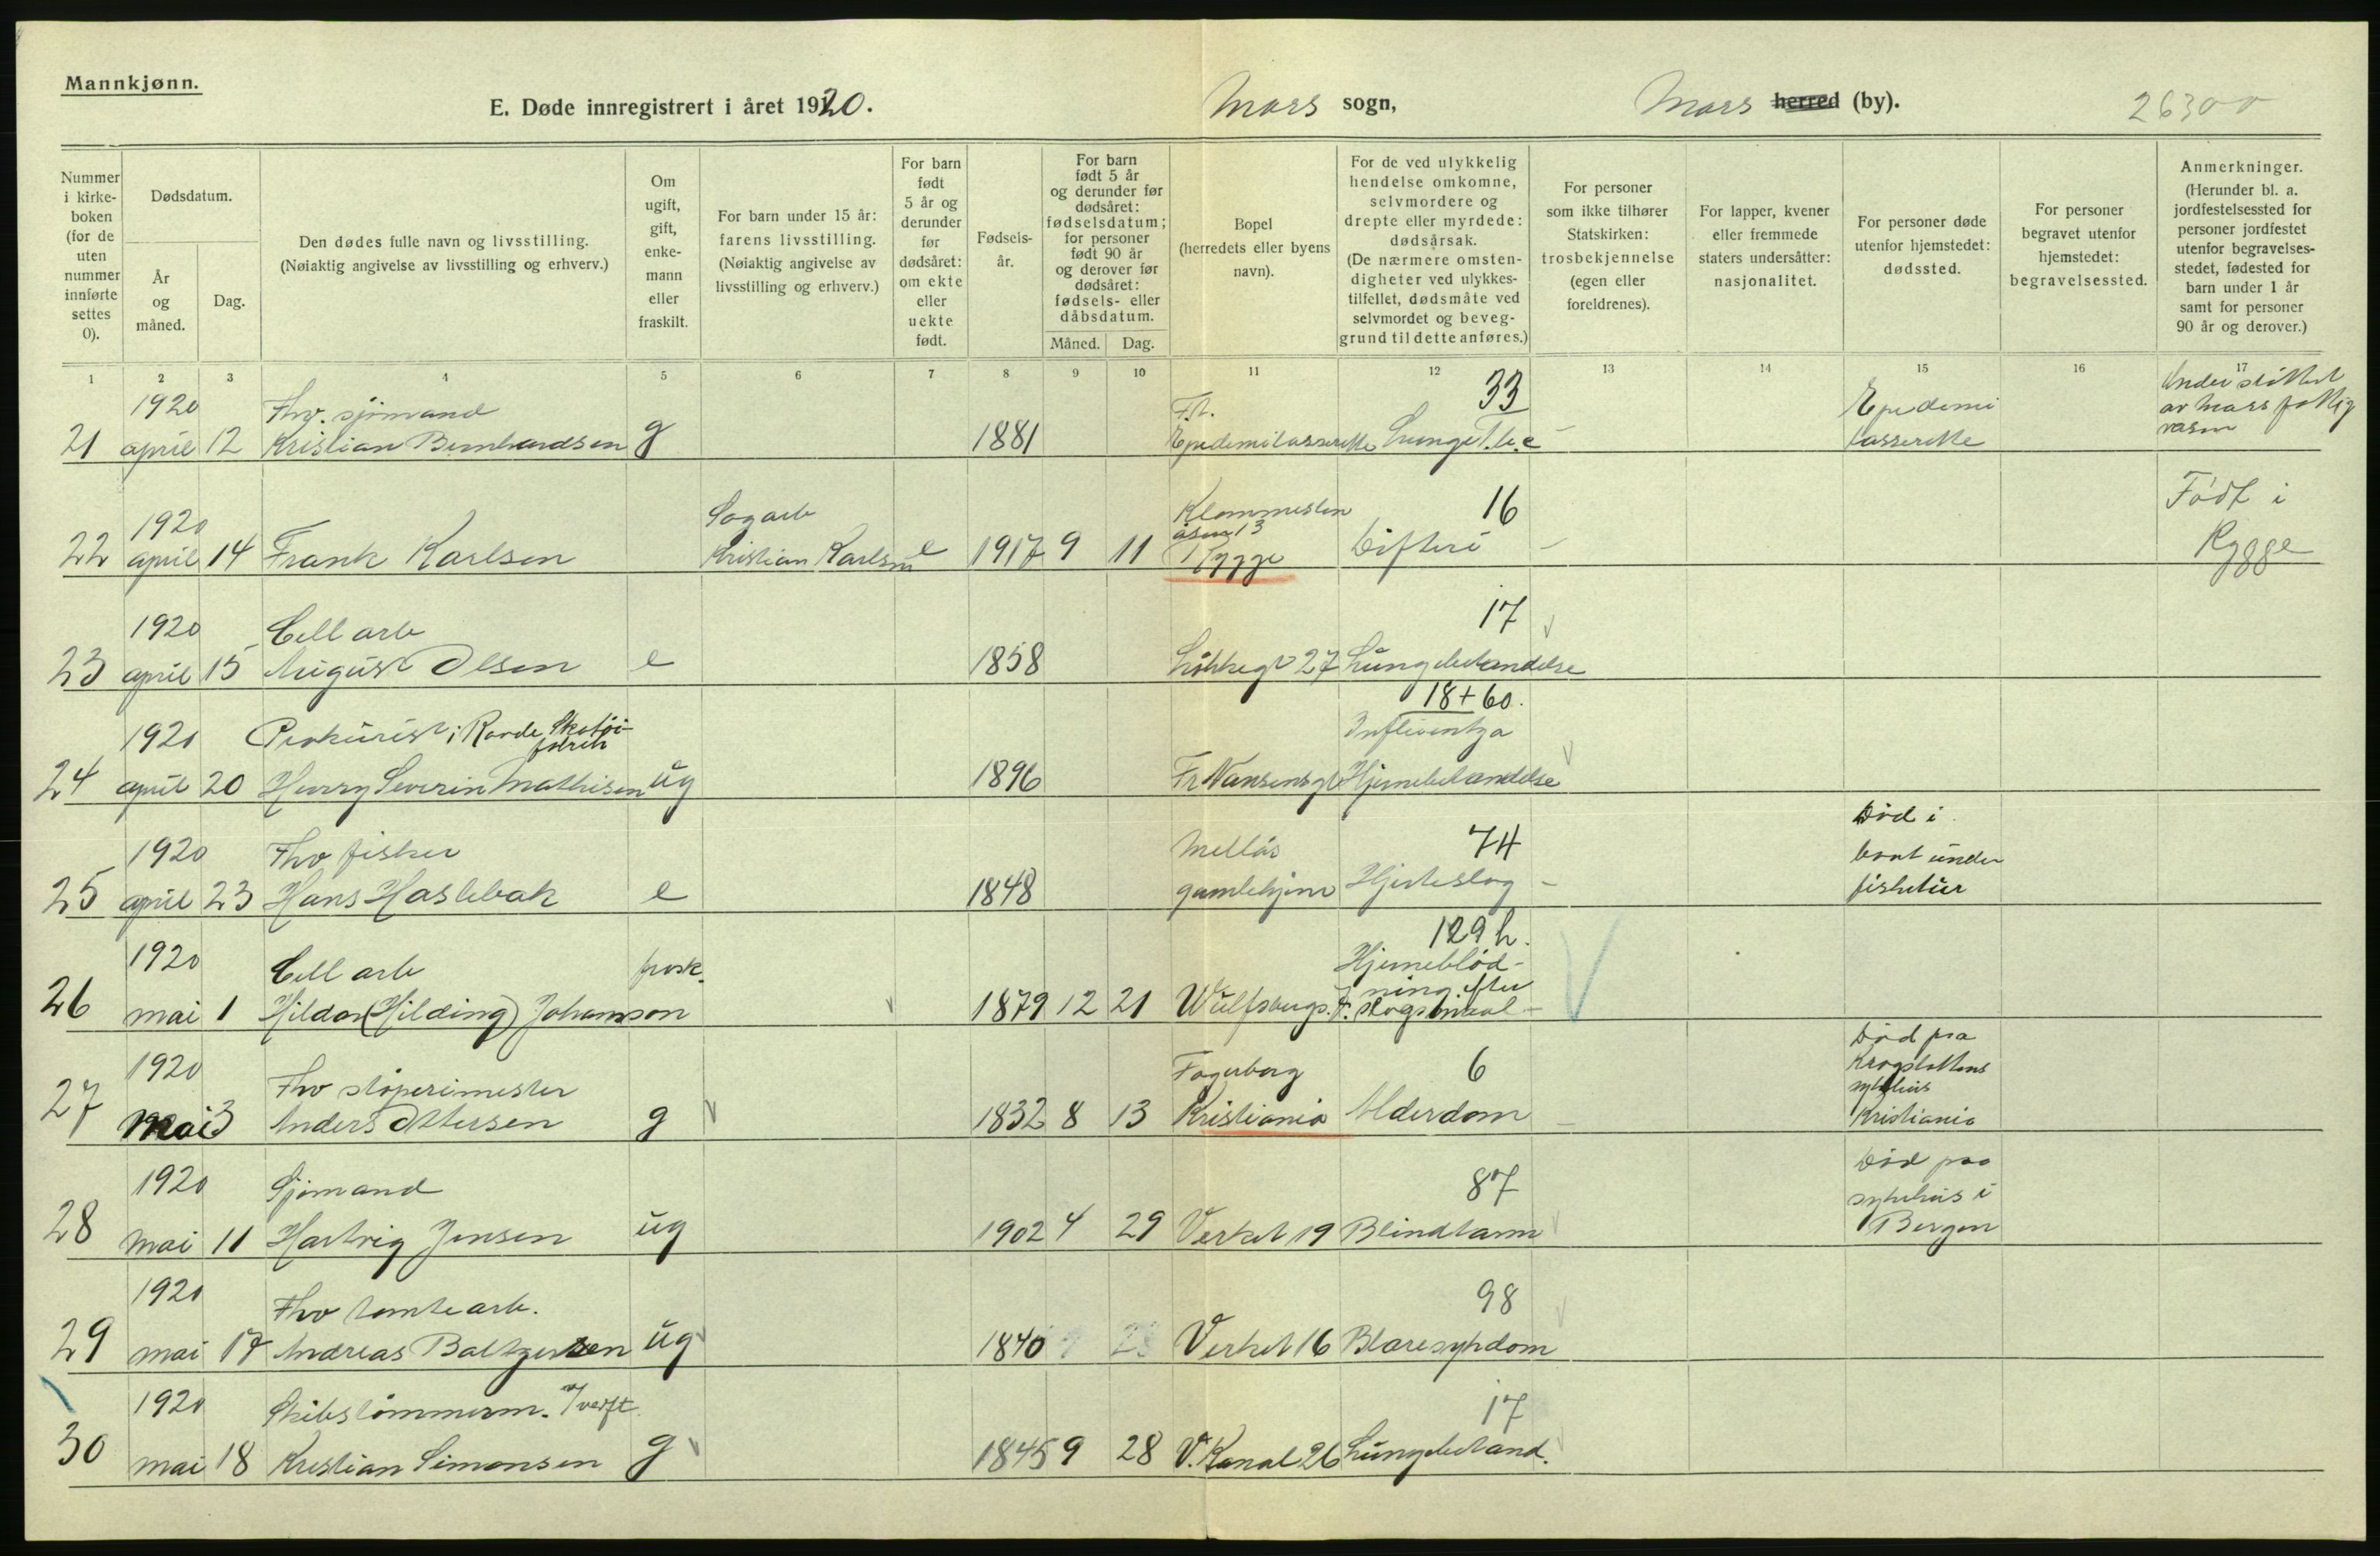 Mannkjønn.
E. Døde innregistrert i året 1920.
Moss sogn,
Moss herred (by).
26300
Nummer i kirke-boken (for de uten nummer innførte settes 0).
Dødsdatum.
År og måned.
Dag.
Den dødes fulle navn og livsstilling.
(Nøiaktig angivelse av livsstilling og erhverv.)
Om ugift, gift, enke-mann eller fraskilt.
For barn under 15 år: farens livsstilling. (Nøiaktig angivelse av livsstilling og erhverv.)
For barn født 5 år og derunder før dødsåret: om ekte eller uekte født.
Fødsels-år.
For barn født 5 år og derunder før dødsåret: fødselsdatum; for personer født 90 år og derover før dødsåret: fødsels- eller dåbsdatum.
Måned. Dag.
Bopel (herredets eller byens navn).
For de ved ulykkelig hendelse omkomne, selvmordere og drepte eller myrdede: dødsårsak. (De nærmere omsten-digheter ved ulykkes-tilfellet, dødsmåte ved selvmordet og beveg-grund til dette anføres.)
For personer som ikke tilhører Statskirken: trosbekjennelse (egen eller foreldrenes).
For lapper, kvener eller fremmede staters undersåtter: nasjonalitet.
For personer døde utenfor hjemstedet: dødssted.
For personer begravet utenfor hjemstedet: begravelsessted.
Anmerkninger. (Herunder bl. a. jordfestelsessted for personer jordfestet utenfor begravelses-stedet, fødested for barn under 1 år samt for personer 90 år og derover.)
1 2 3 4 5 6 7 8 9 10 11 12 13 14 15 16 17
1920 Fhv. sjømand F.t. 33 Epedemi Understøttet av Moss fattig
21 april 12 Kristian Bernhardsen g 1881 Epedemilasserette Lunge T.b.c – lasserette vesen
1920 Sagarb Klommesten åsen 13 16 Født i
22 april 14 Frank Karlsen Kristian Karlsen e 1917 9 11 Rygge Difteri – Rygge
1920 Cell arb 17
23 april 15 August Olsen e 1858 Løkkegt 27 Lungebetendelse
1920 Prokurist i Rande Skotøi- 18+60. Influentza
24 april 20 Harry Severin Mathisen ug 1896 Fr Nansensgt Hjernebetendelse
1920 Fhv fisker Melløs 74 Død i
25 april 23 Hans Haslebak e 1848 gamlehjem Hjerteslag – baat under fisketur
1920 Cell arb frask. 129 h. Hjerneblød-
26 mai 1 Hildor (Hilding) Johansson 1879 12 21 Wulfsbergs. 7. ning efter slagsmaal –
1920 Fhv støperimester Fagerborg 6 Død paa Krogstøttens sykehus
27 mai 3 Anders Ottersen g 1832 8 13 Kristiania Alderdom – Kristiania
1920 Sjømand 87 Død paa sykehus i
28 mai 11 Hartvig Jensen ug 1902 4 29 Verket 19 Blindtarm Bergen
1920 Fhv tomtearb. 98
29 mai 17 Andreas Baltzersen ug 1840 Verket 16 Blæresykdom
1920 Skibstømmerm. v/verft 17
30 mai 18 Kristian Simonsen g 1845 9 28 V. Kanal 26 Lungebetænd.